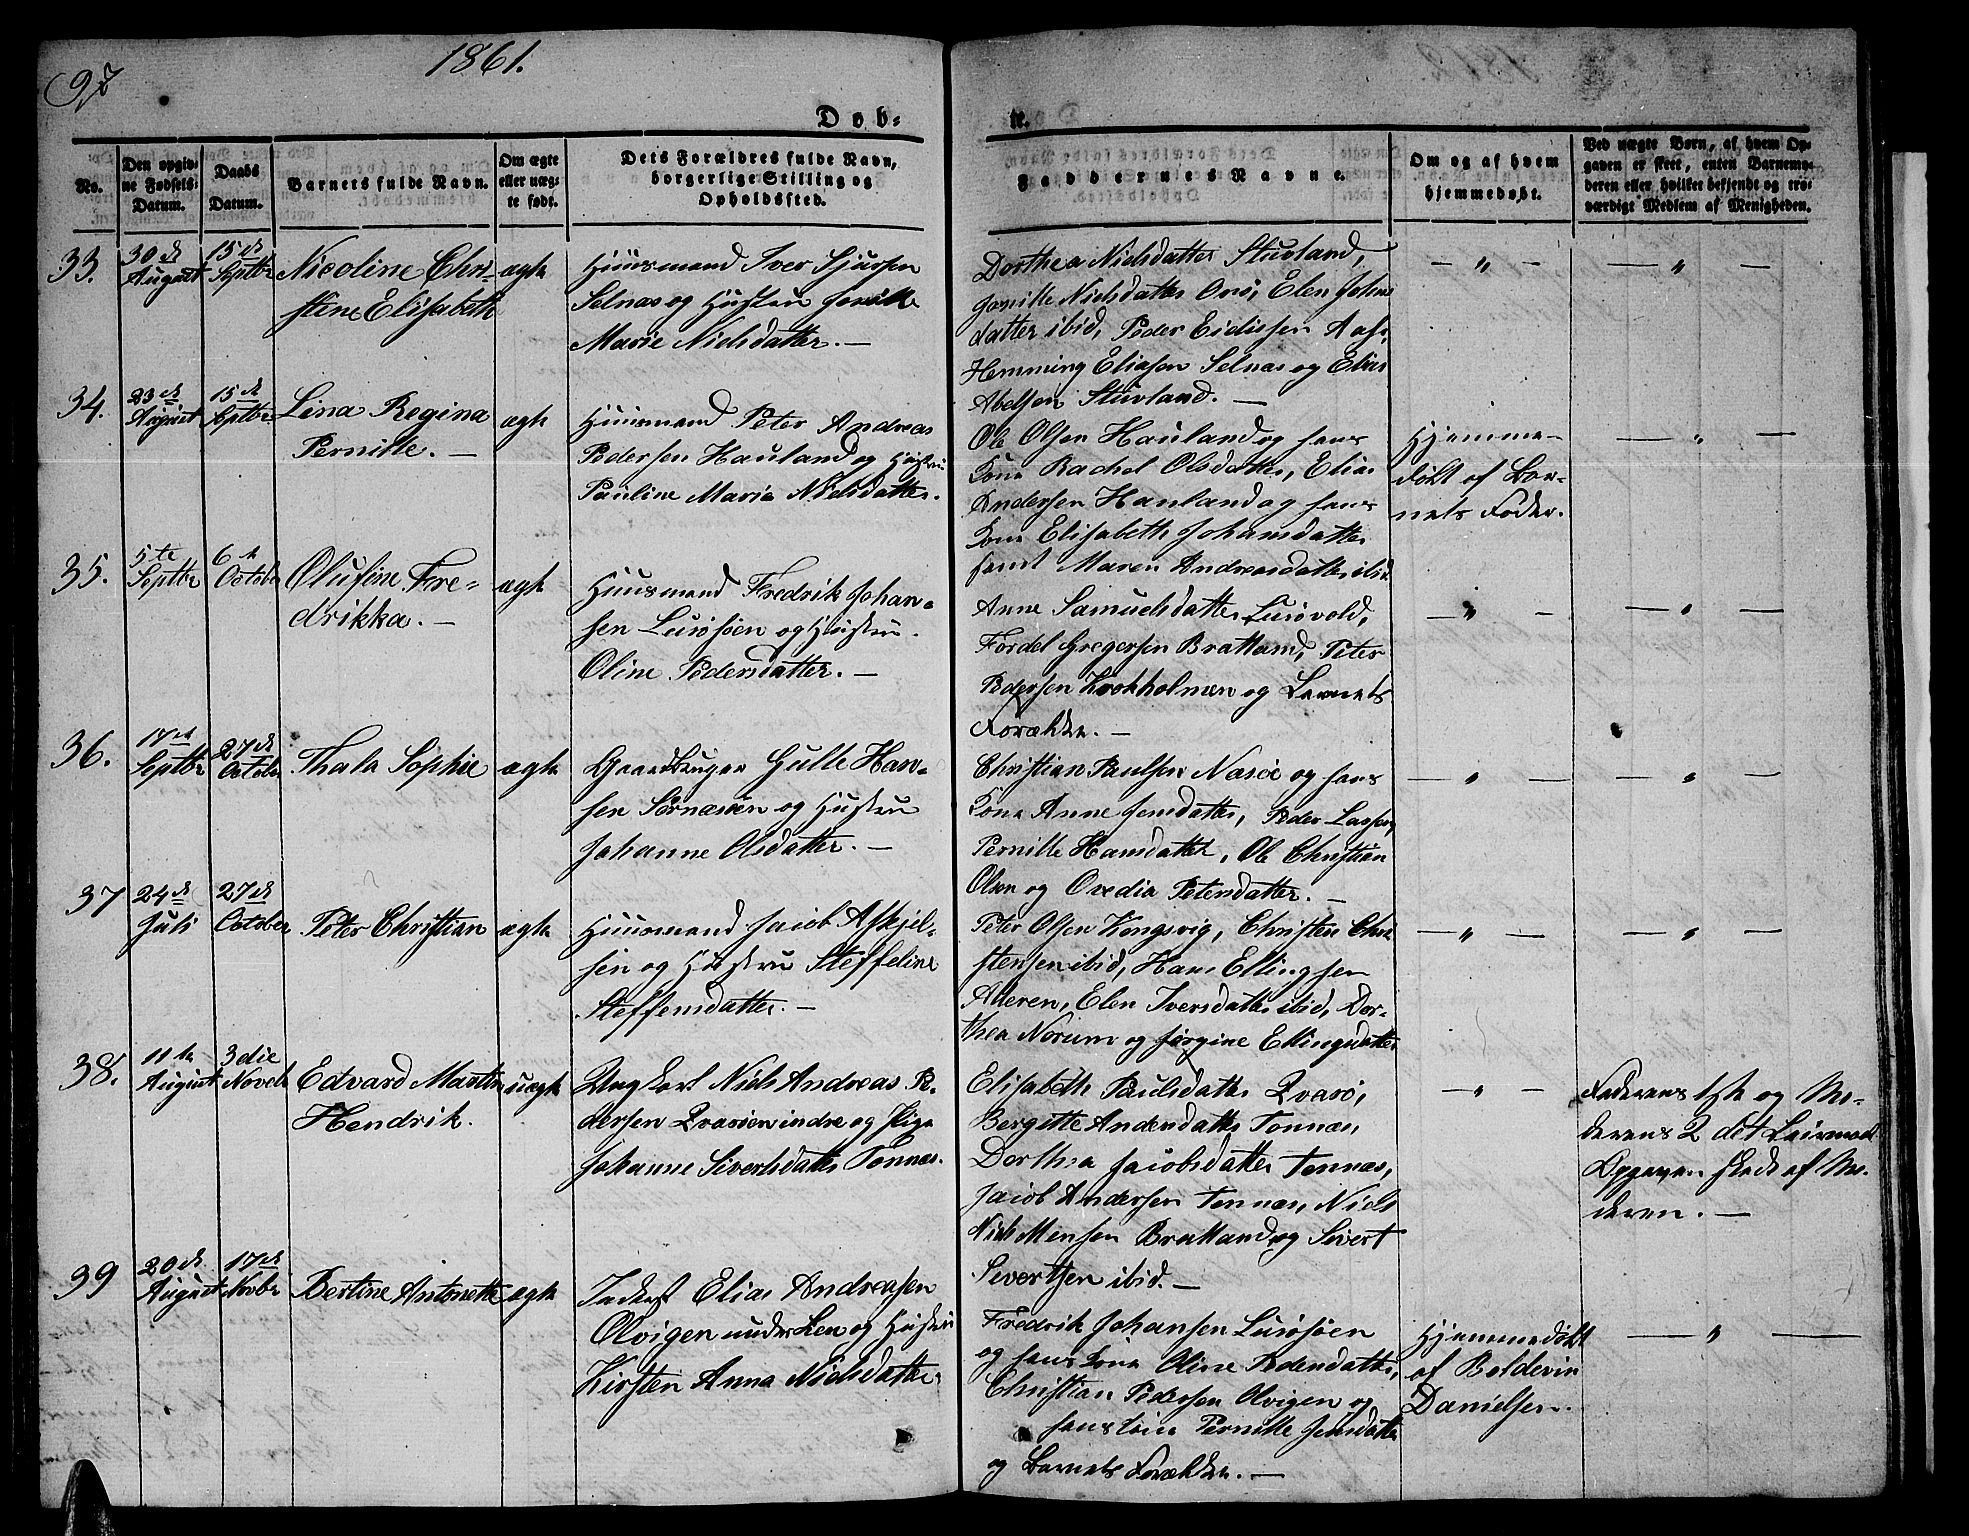 1861.
Døb-
te.
No.
Den opgiv-
ne Fødsels-
Datum.
Daabs
Datum.
Barnets fulde Navn.
Om ægte
eller uæg-
te født.
Dets Forældres fulde Navn,
borgerlige Stilling og
Opholdssted.
Faddernes Navne.
Om og af hvem
hjemmedøbt.
Ved uægte Børn, af hvem Op-
gaven er skeet, enten Barnemo-
deren eller hvilket bekjendt og tro-
værdigt Medlem af Menigheden.
33.
30 d
August
15 d
Septbr
Nicoline Chri-
stine Elisabeth
ægte
Huusmand Iver Sjursen
Selnæs og Hustru
Marie Nielsdatter. —
Dorthea Nielsdatter Stuvland,
Nielsdatter Onø, Elen Johns
datter ibid, Peder Eidissen Aas,
Hemming Eliasen Selnæs og Elias
Abelsen Stuvland. —
— " —
— " —
34.
23 d
August
15 d
Septbr
Lina Regina
Pernille. —
ægte
Huusmand Peter Andreas
Pedersen Hauland og Hustru
Pauline Maria Nielsdatter.
Ole Olsen Hauland og hans
Kone Rachel Olsdatter, Elias
Andersen Hauland og hans
Kone Elisabeth Johansdatter
samt Maren Andreasdatter ibid
Hjemme-
døbt af Bar-
nets Fader.
— " —
35.
5te
Septbr
6te
October
Olufine Fre-
drikka. —
ægte
Huusmand Fredrik Johan-
sen Lurøsøen og Hustru
Oline Pedersdatter. —
Anne Samuelsdatter Lurøvold,
Fordel Gregersen Bratland, Peter
Pedersen Krokholmen og Barnets
Forældre. —
— " —
— " —
36.
17d
Septbr
27 d
October
Thala Sophie
ægte
Gaardbruger Gulle Han-
sen Sørnæsøen og Hustru
Johanne Olsdatter. —
Christian Paulsen Næsøe og hans
Kone Anne Jensdatter, Peder Lassen,
Pernille Hansdatter, Ole Christian
Olsen og Ovedia Petersdatter. —
— " —
— " —
37
24 d
Juli
27 d
October
Peter Christian
ægte
Huusmand Jacob Askjel-
sen og Hustru Steffeline
Steffensdatter. —
Peter Olsen Kongsvig, Christen Chri-
stensen ibid, Hans Ellingsen
Alderen, Elen Iversdatter ibid, Dor-
thea Norum og Jørgine Ellingsdatter
— " —
— " —
38.
11te
August
3die
Novbr
Edvard Martin
Hendrik.
uægte
Ungkarl Niels Andreas Pe-
dersen Qvarøen indre og Pige
Johanne Sivertsdatter Tonnæs.
Elisabeth Paulsdatter Qvarø,
Bergitte Andersdatter Tonnæs,
Dorthea Jacobsdatter Tonnæs,
Jacob Andersen Tonnæs, Niels
Bratland og Sivert
Sivertsen ibid. —
— " —
Faderens 1ste og Mo-
derens 2 det Leiermaal
Opgaven skede af Mo-
deren. —
39
20 d
August
17 d
Novbr
Bertine Antonette
ægte
Inderst Elias Andreasen
Olvigen under Leen og Hustru
Kirsten Anna Nielsdatter
Fredrik Johansen Lurøsøen
og hans Kone Oline Pedersdatter,
Christian Pedersen Olvigen og
hans Kone Pernille Jensdatter
og Barnets Forældre. —
Hjemmedøbt
af Boldevin
Danielsen.
— " —